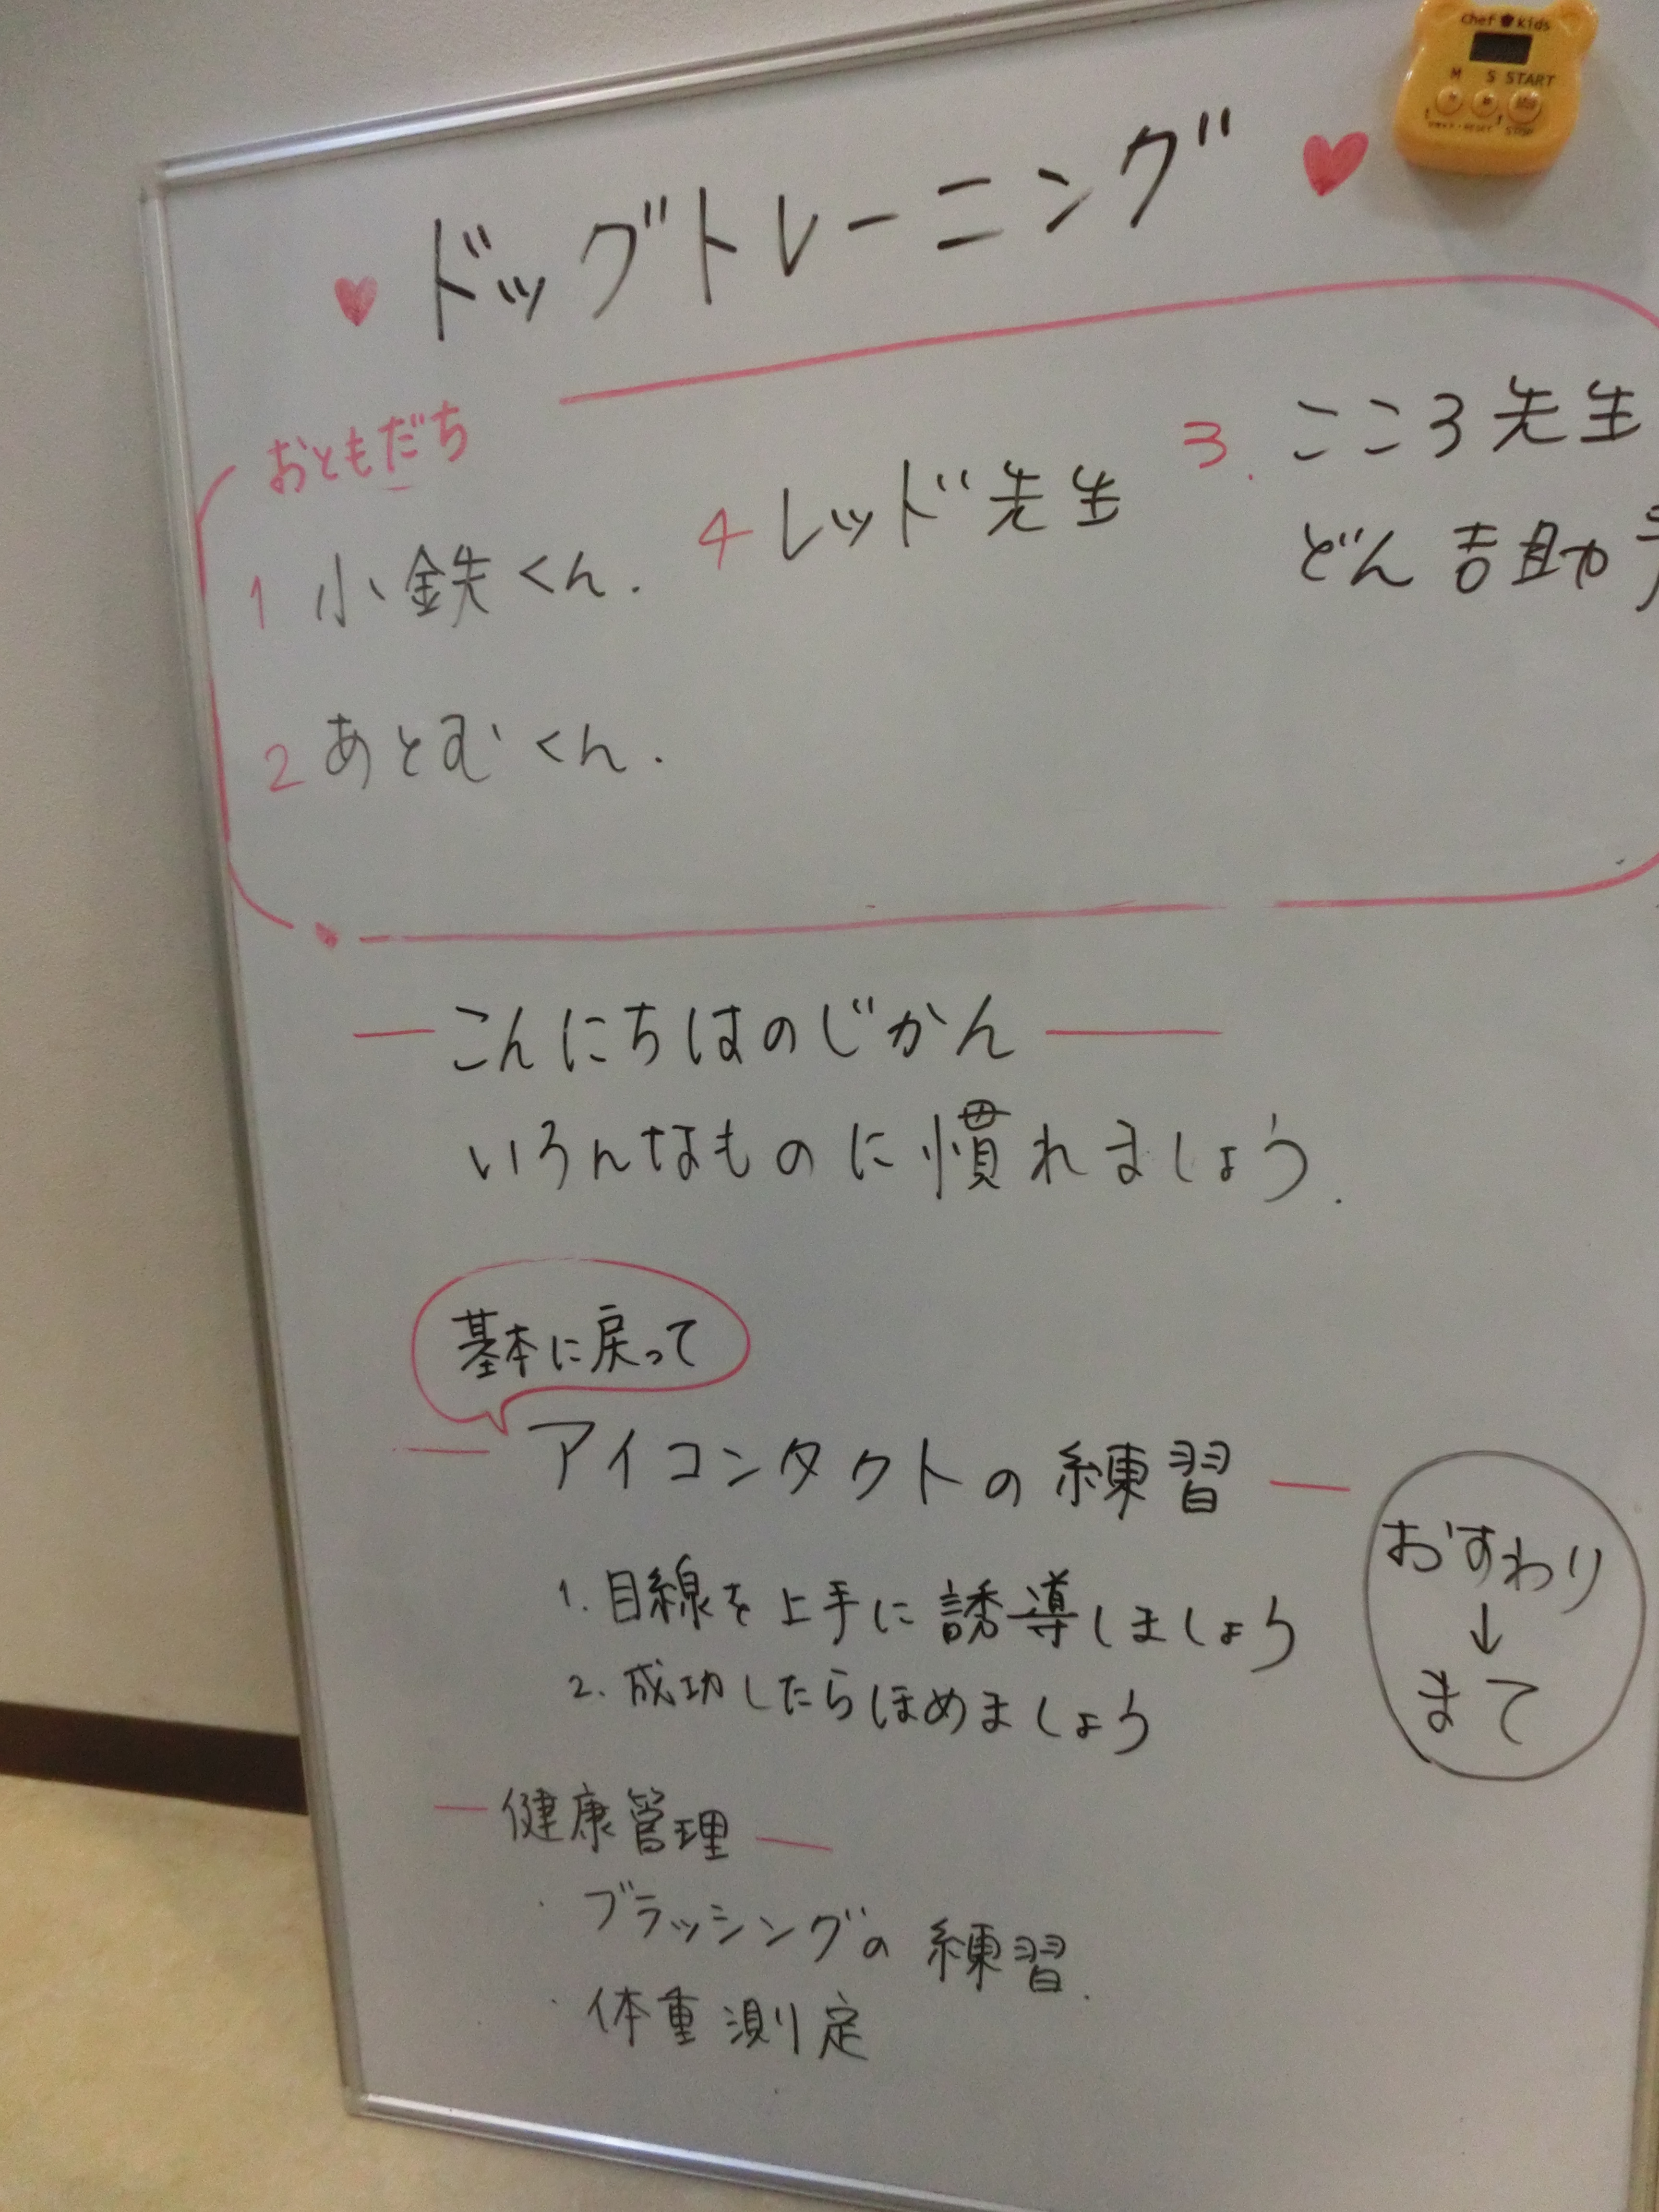 Chef Kids
M S START
STOP
♥ ドッグトレーニング ♥
おともだち
1 小鉄くん.
2 あとむくん.
4 レッド先生
3. こころ先生
どん吉助手
ーこんにちはのじかんー
いろんなものに慣れましょう.
基本に戻って
ーアイコンタクトの練習ー
1. 目線を上手に誘導しましょう
2. 成功したらほめましょう
おすわり
↓
まて
ー健康管理ー
・ブラッシングの練習.
・体重測定